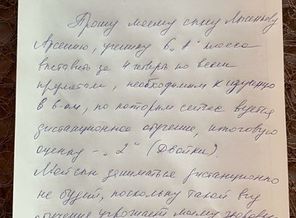 Прошу моему сыну
Арсению, ученику 6 "А" класса
выставить за 4 четверть по всем
предметам, необходимым к изучению
в 6-ом, по которым сейчас ведется
дистанционное обучение, итоговую
оценку - "2" (Двойки).
Мой сын заниматься дистанционно
не будет, поскольку такой вид
обучения угрожает моему здоровью